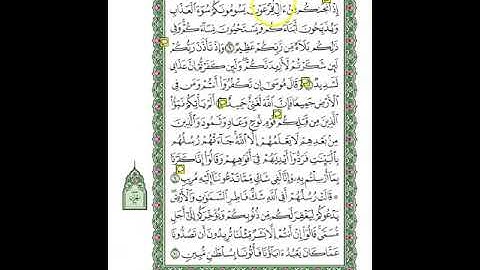 إِذْ أَنجَىٰكُم مِّنْ ءَالِ فِرْعَوْنَ يَسُومُونَكُمْ سُوٓءَ ٱلْعَذَابِ
وَيُذَبِّحُونَ أَبْنَآءَكُمْ وَيَسْتَحْيُونَ نِسَآءَكُمْ وَفِى
ذَٰلِكُم بَلَآءٌ مِّن رَّبِّكُمْ عَظِيمٌ ٦ وَإِذْ تَأَذَّنَ رَبُّكُمْ
لَئِن شَكَرْتُمْ لَأَزِيدَنَّكُمْ وَلَئِن كَفَرْتُمْ إِنَّ عَذَابِى
لَشَدِيدٌ ٧ وَقَالَ مُوسَىٰٓ إِن تَكْفُرُوٓا۟ أَنتُمْ وَمَن فِى
ٱلْأَرْضِ جَمِيعًا فَإِنَّ ٱللَّهَ لَغَنِىٌّ حَمِيدٌ ٨ أَلَمْ يَأْتِكُمْ نَبَؤُا۟
ٱلَّذِينَ مِن قَبْلِكُمْ قَوْمِ نُوحٍ وَعَادٍ وَثَمُودَ وَٱلَّذِينَ
مِنۢ بَعْدِهِمْ لَا يَعْلَمُهُمْ إِلَّا ٱللَّهُ جَآءَتْهُمْ رُسُلُهُم
بِٱلْبَيِّنَٰتِ فَرَدُّوٓا۟ أَيْدِيَهُمْ فِىٓ أَفْوَٰهِهِمْ وَقَالُوٓا۟ إِنَّا كَفَرْنَا
بِمَآ أُرْسِلْتُم بِهِۦ وَإِنَّا لَفِى شَكٍّ مِّمَّا تَدْعُونَنَآ إِلَيْهِ مُرِيبٍ ٩
۞ قَالَتْ رُسُلُهُمْ أَفِى ٱللَّهِ شَكٌّ فَاطِرِ ٱلسَّمَٰوَٰتِ وَٱلْأَرْضِ
يَدْعُوكُمْ لِيَغْفِرَ لَكُم مِّن ذُنُوبِكُمْ وَيُؤَخِّرَكُمْ إِلَىٰٓ أَجَلٍ
مُّسَمًّى قَالُوٓا۟ إِنْ أَنتُمْ إِلَّا بَشَرٌ مِّثْلُنَا تُرِيدُونَ أَن تَصُدُّونَا
عَمَّا كَانَ يَعْبُدُ ءَابَآؤُنَا فَأْتُونَا بِسُلْطَٰنٍ مُّبِينٍ ١٠